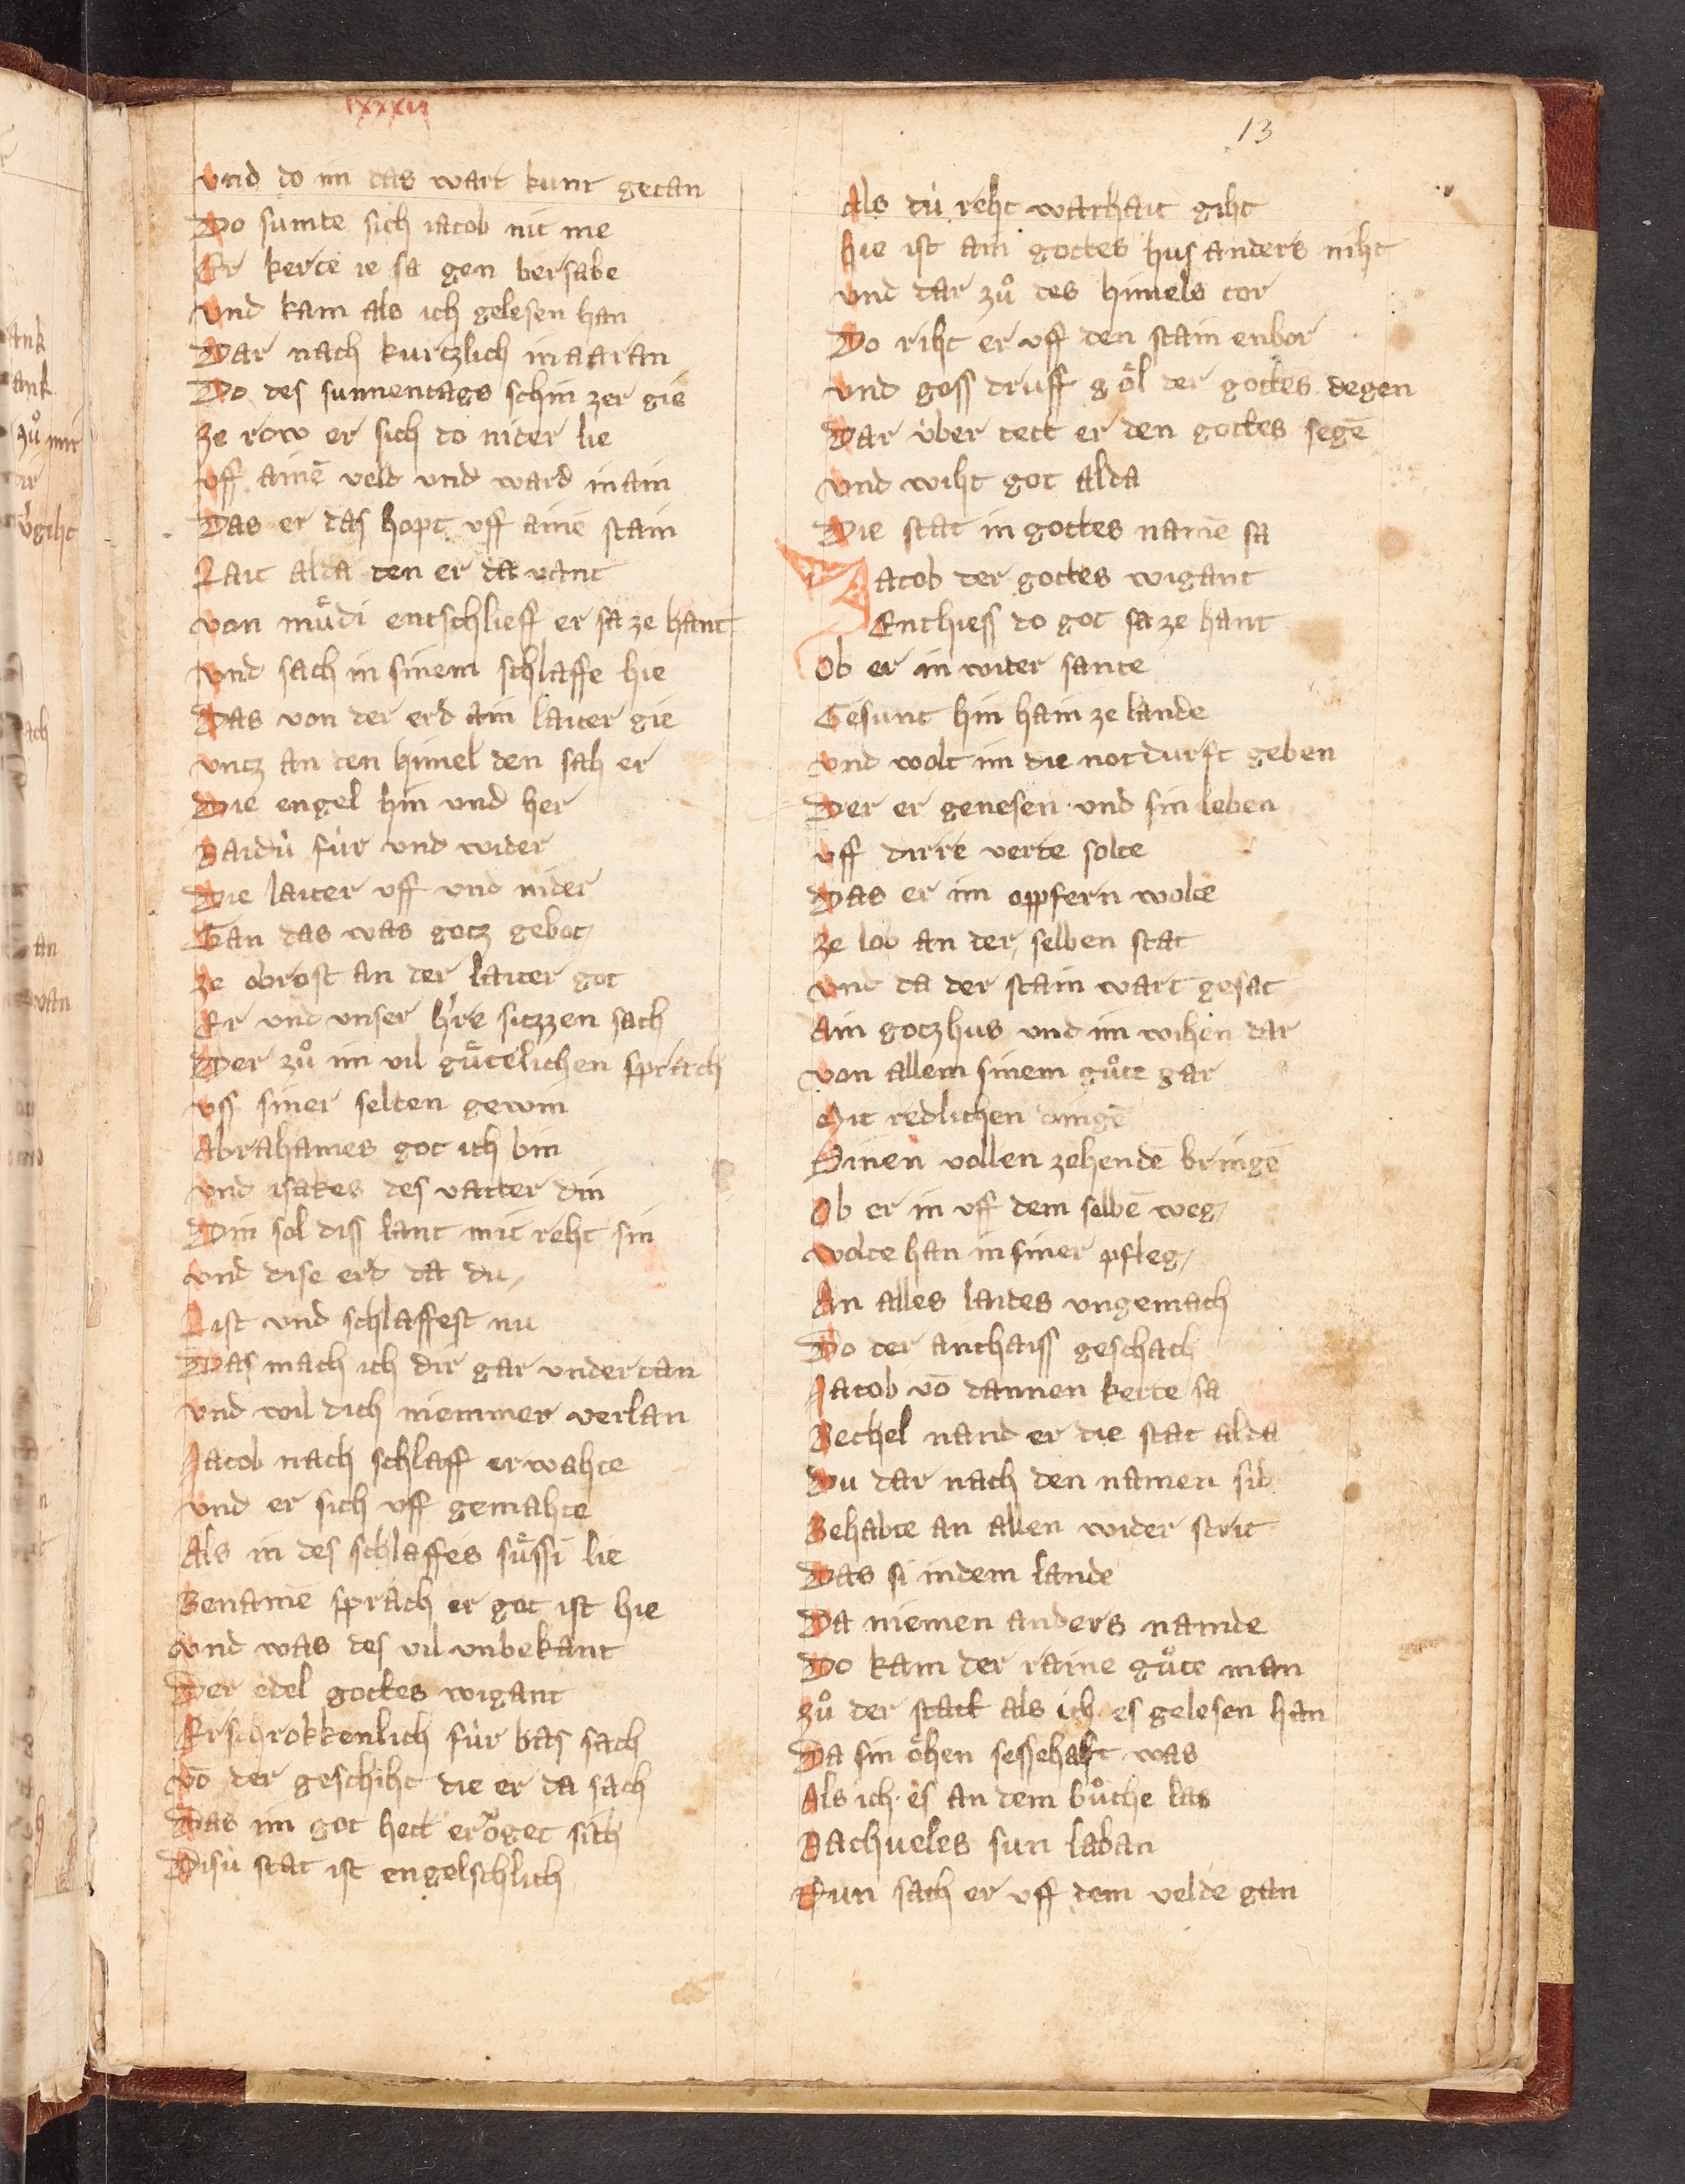 lxxxii
13
Und do im das wart kunt getan
Do sumte sich iacob nit me
Er kerte ie sa gen bersabe
Und kam als ich gelesen han
Dar nach kurtzlich in aaran
Do des sunnentags schin zer gie
Ze row er sich do nider lie
Uff ainē veld und ward in ain
Das er das hopt uff ainē stain
Lait alda den er da vant
Von muͤdi entschlieff er sa ze hant
Und sach in sinem schlaffe hie
Das von der erd ain laiter gie
Untz an den himel den sah er
Die engel hin und her
Baidú fúr und wider
Die laiter uff und nider
Gan das was gotz gebot
Ze obrost an der laiter got
Er und unser hre sitzzen sach
Der zuͦ im vil guͤtelichen sprach
Uss siner selten gewin
Abrahames got ich bin
Und isakes des vatter din
Din sol diss lant mit reht sin
Und dise erd da du
List und schlaffest nu
Das mach ich dir gar undertan
Und wil dich niemmer verlan
Jacob nach schlaff erwahte
Und er sich uff gemahte
Als in des schlaffes suͤssi lie
Benamē sprach er got ist hie
Und was des vil unbekant
Der edel gottes wigant
Erschrokkenlich fúr bas sach
Vō der geschiht die er da sach
Das im got hett eroͤget sich
Disú stat ist engelschlich
Als dú reht warhait giht
Hie ist ain gottes hus anders niht
Und dar zuͦ des himels tor
Do riht er uff den stain enbor
Und goss druff g oͤl der gottes degen
Dar úber tett er den gottes segē
Und wiht got alda
Die stat in gottes namē sa
Jacob der gottes wigant
Enthiess do got sa ze hant
Ob er in wider sante
Gesunt hin hain ze lande
Und wolt im die notdurft geben
Der er genesen und sin leben
Uff dirre verte solte
Das er im oppfern wolte
Ze lob an der selben stat
Und da der stain wart gesat
Ain gotzhus und im wihen dar
Von allem sinem guͦte gar
Mit redlichen dingē
Sinen vollen zehendē bringē
Ob er in uff dem selbē weg
Wolte han in siner pfleg
An alles laides ungemach
Do der anthaiss geschach
Jacob vō dannen kerte sa
Bethel nand er die stat alda
Du dar nach den namen sid
Behabte an allen wider strit
Das si in dem lande
Da niemen anders namde
Do kam der raine guͦte man
Zuͦ der statt als ich es gelesen han
Da sin oͤhen sessehaft was
Als ich es an dem buͦche las
Nachueles sun laban
Nun sach er uff dem velde gan